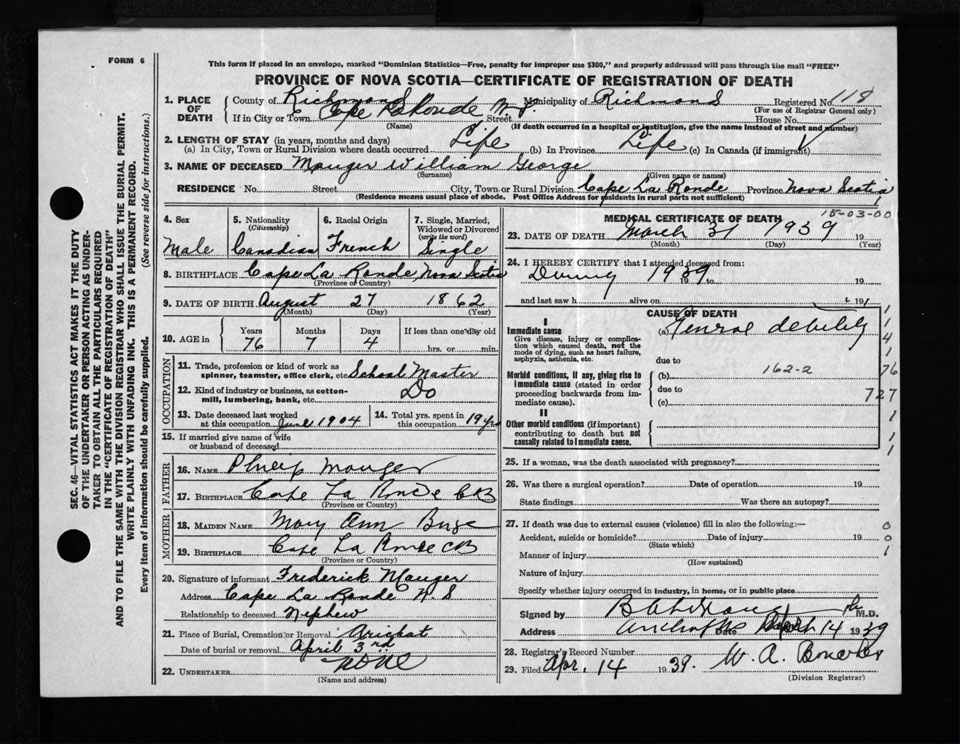 FORM 6
This form if placed in an envelope, marked "Dominion Statistics—Free, penalty for improper use $300," and properly addressed will pass through the mail "FREE"
PROVINCE OF NOVA SCOTIA—CERTIFICATE OF REGISTRATION OF DEATH
SEC. 46—VITAL STATISTICS ACT MAKES IT THE DUTY
OF THE UNDERTAKER OR PERSON ACTING AS UNDER-
TAKER TO OBTAIN ALL THE PARTICULARS REQUIRED
IN THE "CERTIFICATE OF REGISTRATION OF DEATH"
AND TO FILE THE SAME WITH THE DIVISION REGISTRAR WHO SHALL ISSUE THE BURIAL PERMIT.
WRITE PLAINLY WITH UNFADING INK. THIS IS A PERMANENT RECORD.
Every item of information should be carefully supplied. (See reverse side for instructions.)
1. PLACE OF DEATH County of Richmond Municipality of Richmond Registered No. 118
(For use of Registrar General only)
If in City or Town Cape LaRonde N.S. Street House No.
(Name) (If death occurred in a hospital or institution, give the name instead of street and number)
2. LENGTH OF STAY (in years, months and days)
(a) In City, Town or Rural Division where death occurred Life (b) In Province Life (c) In Canada (if immigrant)
3. NAME OF DECEASED Mauger William George
(Surname) (Given name or names)
RESIDENCE No. Street City, Town or Rural Division Cape La Ronde Province Nova Scotia
(Residence means usual place of abode. Post Office Address for residents in rural parts not sufficient)
4. Sex 5. Nationality (Citizenship) 6. Racial Origin 7. Single, Married, Widowed or Divorced (write the word)
Male Canadian French Single
8. BIRTHPLACE Cape La Ronde, Nova Scotia
(Province or Country)
9. DATE OF BIRTH August 27 1862
(Month) (Day) (Year)
10. AGE in Years Months Days If less than one day old
76 7 4 hrs. or min.
OCCUPATION
11. Trade, profession or kind of work as spinner, teamster, office clerk, etc. School Master
12. Kind of industry or business, as cotton-mill, lumbering, bank, etc. Do
13. Date deceased last worked at this occupation June 1904 14. Total yrs. spent in this occupation 19 yrs
15. If married give name of wife or husband of deceased
FATHER
16. NAME Mauger
17. BIRTHPLACE Cape La Ronde CB
(Province or Country)
MOTHER
18. MAIDEN NAME Mary Ann
19. BIRTHPLACE Cape La Ronde CB
(Province or Country)
20. Signature of informant Frederick Mauger
Address Cape La Ronde N.S
Relationship to deceased Nephew
21. Place of Burial, Cremation or Removal Arichat
Date of burial or removal April 3rd
22. UNDERTAKER none
(Name and address)
MEDICAL CERTIFICATE OF DEATH
15-03-00
23. DATE OF DEATH March 31 1939 19
(Month) (Day) (Year)
24. I HEREBY CERTIFY that I attended deceased from:
During 1939 19
and last saw h alive on 19
CAUSE OF DEATH
I
Immediate cause (a)
Give disease, injury or complication which caused death, not the mode of dying, such as heart failure, asphyxia, asthenia, etc. due to
Morbid conditions, if any, giving rise to immediate cause (stated in order proceeding backwards from immediate cause). (b) 162-2
due to
(c)
II
Other morbid conditions (if important) contributing to death but not causally related to immediate cause.
76
727
25. If a woman, was the death associated with pregnancy?
26. Was there a surgical operation? Date of operation 19
State findings Was there an autopsy?
27. If death was due to external causes (violence) fill in also the following:—
Accident, suicide or homicide? Date of injury 19
(State which)
Manner of injury
(How sustained)
Nature of injury
Specify whether injury occurred in industry, in home, or in public place
0
0
1
Signed by M.D.
Address Date 14 1939
28. Registrar's Record Number
29. Filed Apr. 14 1939. W. A.
(Division Registrar)